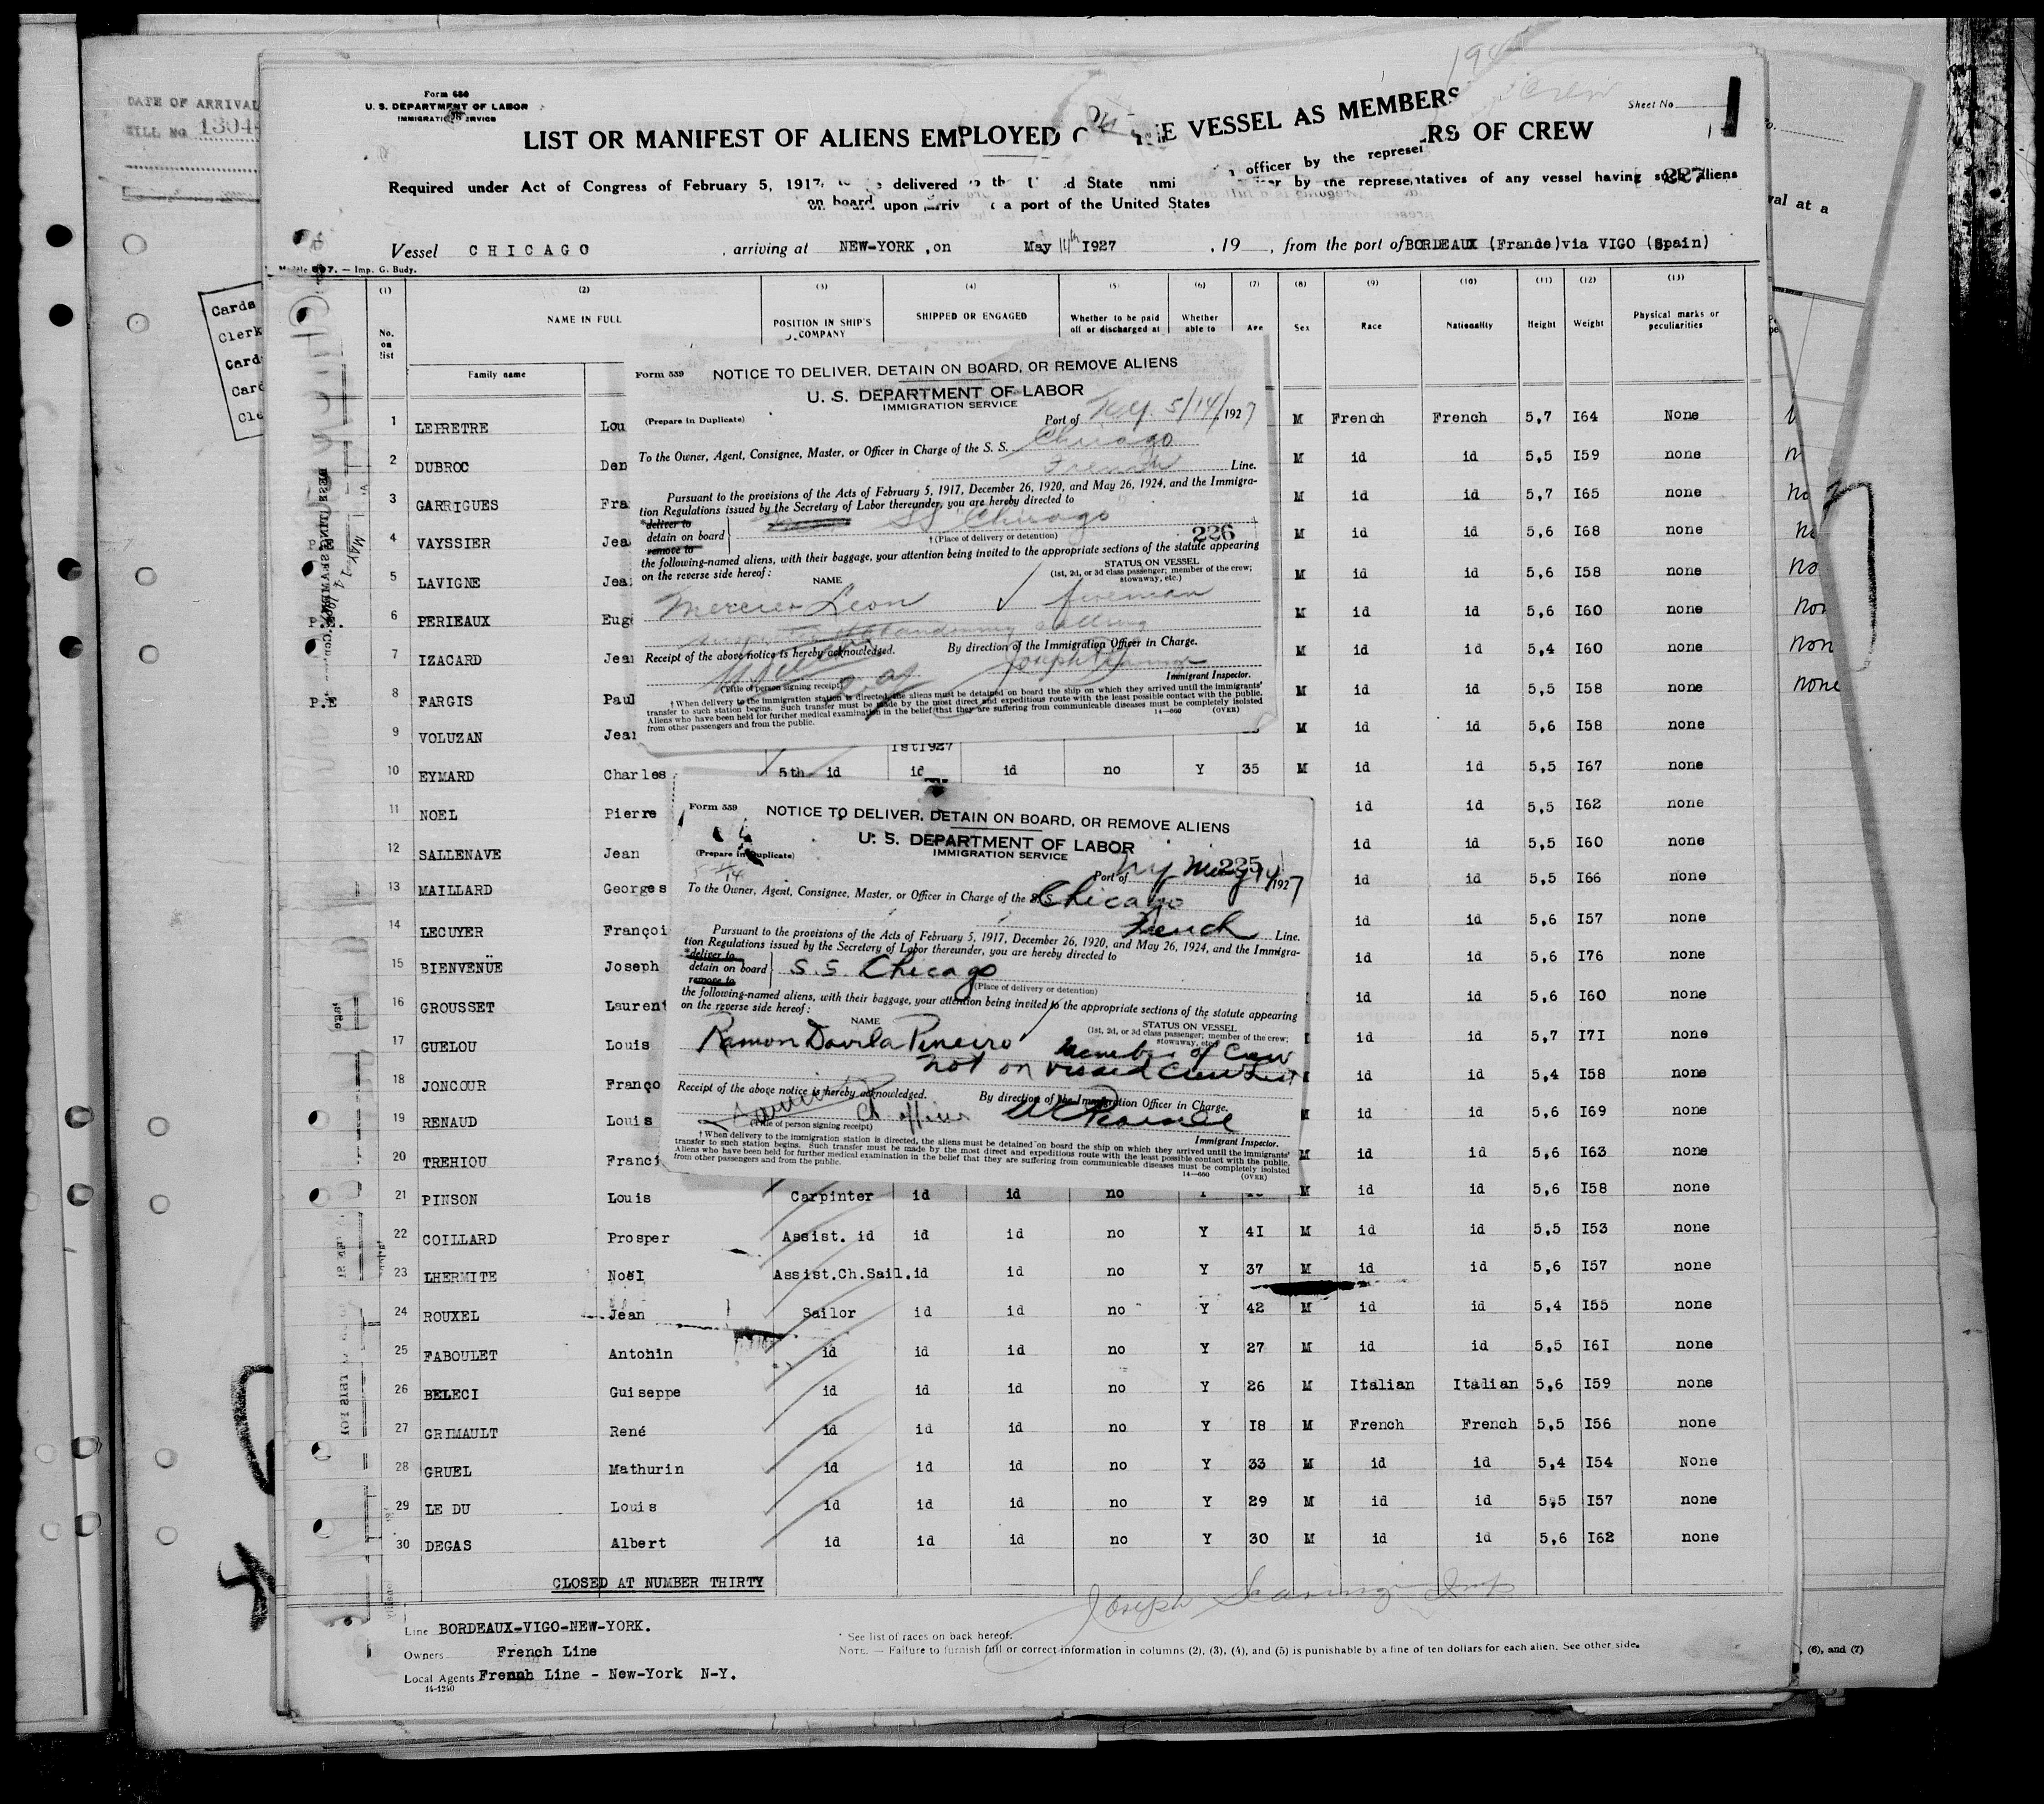 DATE OF ARRIVAL
BILL NO 1304
Cards
Clerk
Card
Card
Cle
Form 680
U. S. DEPARTMENT OF LABOR
IMMIGRATION SERVICE
Sheet No. 1
LIST OR MANIFEST OF ALIENS EMPLOYED O THE VESSEL AS MEMBERS
RS OF CREW
officer by the represe
Required under Act of Congress of February 5, 1917, to be delivered to the United State immi er by the representatives of any vessel having such aliens
227
on board upon arriv a port of the United States
val at a
Vessel CHICAGO , arriving at NEW-YORK , on May 14th 1927 , 19 , from the port of BORDEAUX (Frande) via VIGO (Spain)
Modèle 507. — Imp. G. Budy.
(1) (2) (3) (4) (5) (6) (7) (8) (9) (10) (11) (12) (13)
No. on list NAME IN FULL POSITION IN SHIP'S COMPANY SHIPPED OR ENGAGED Whether to be paid off or discharged at Whether able to Age Sex Race Nationality Height Weight Physical marks or peculiarities
Family name
1 LEIRETRE Lou M French French 5,7 I64 None
2 DUBROC Den M id id 5,5 I59 none
3 GARRIGUES Fra M id id 5,7 I65 none
4 VAYSSIER Jea M id id 5,6 I68 none
5 LAVIGNE Jea M id id 5,6 I58 none
6 PERIEAUX Eug M id id 5,6 I60 none
7 IZACARD Jea M id id 5,4 I60 none
P.E 8 FARGIS Paul M id id 5,5 I58 none
9 VOLUZAN Jea M id id 5,6 I58 none
1st1927
10 EYMARD Charles 5th id id id no Y 35 M id id 5,5 I67 none
11 NOEL Pierre id id 5,5 I62 none
12 SALLENAVE Jean id id 5,5 I60 none
13 MAILLARD Georges id id 5,5 I66 none
14 LECUYER Françoi id id 5,6 I57 none
15 BIENVENÜE Joseph id id 5,6 I76 none
16 GROUSSET Laurent id id 5,6 I60 none
17 GUELOU Louis id id 5,7 I7I none
18 JONCOUR Franço id id 5,4 I58 none
19 RENAUD Louis M id id 5,6 I69 none
20 TREHIOU Franci M id id 5,6 I63 none
21 PINSON Louis Carpinter id id no M id id 5,6 I58 none
22 COILLARD Prosper Assist. id id id no Y 4I M id id 5,5 I53 none
23 LHERMITE Noël Assist.Ch.Sail. id id no Y 37 M id id 5,6 I57 none
24 ROUXEL Jean Sailor id id no Y 42 M id id 5,4 I55 none
25 FABOULET Antohin id id id no Y 27 M id id 5,5 I6I none
26 BELECI Guiseppe id id id no Y 26 M Italian Italian 5,6 I59 none
27 GRIMAULT René id id id no Y I8 M French French 5,5 I56 none
28 GRUEL Mathurin id id id no Y 33 M id id 5,4 I54 None
29 LE DU Louis id id id no Y 29 M id id 5,5 I57 none
30 DEGAS Albert id id id no Y 30 M id id 5,6 I62 none
CLOSED AT NUMBER THIRTY
Line BORDEAUX-VIGO-NEW-YORK.
Owners French Line
Local Agents French Line - New-York N-Y.
14-1240
* See list of races on back hereof.
NOTE. — Failure to furnish full or correct information in columns (2), (3), (4), and (5) is punishable by a fine of ten dollars for each alien. See other side.
, (6), and (7)
Form 559
NOTICE TO DELIVER, DETAIN ON BOARD, OR REMOVE ALIENS
U. S. DEPARTMENT OF LABOR
IMMIGRATION SERVICE
(Prepare in Duplicate)
Port of N.Y. 5/14/1927
To the Owner, Agent, Consignee, Master, or Officer in Charge of the S. S. Chicago
French Line.
Pursuant to the provisions of the Acts of February 5, 1917, December 26, 1920, and May 26, 1924, and the Immigra-
tion Regulations issued by the Secretary of Labor thereunder, you are hereby directed to
*deliver to
detain on board
remove to
SS Chicago
† (Place of delivery or detention)
226
the following-named aliens, with their baggage, your attention being invited to the appropriate sections of the statute appearing
on the reverse side hereof:
NAME
STATUS ON VESSEL
(1st, 2d, or 3d class passenger; member of the crew; stowaway, etc.)
Mercier Leon fireman
abandoning calling
Receipt of the above notice is hereby acknowledged.
By direction of the Immigration Officer in Charge.
Immigrant Inspector.
(Title of person signing receipt)
† When delivery to the immigration station is directed, the aliens must be detained on board the ship on which they arrived until the immigrants'
transfer to such station begins. Such transfer must be made by the most direct and expeditious route with the least possible contact with the public.
Aliens who have been held for further medical examination in the belief that they are suffering from communicable diseases must be completely isolated
from other passengers and from the public.
14—660 (OVER)
Form 559
NOTICE TO DELIVER, DETAIN ON BOARD, OR REMOVE ALIENS
U. S. DEPARTMENT OF LABOR
IMMIGRATION SERVICE
(Prepare in Duplicate)
225
Port of NY May 14 1927
To the Owner, Agent, Consignee, Master, or Officer in Charge of the S. S. Chicago
French Line.
Pursuant to the provisions of the Acts of February 5, 1917, December 26, 1920, and May 26, 1924, and the Immigra-
tion Regulations issued by the Secretary of Labor thereunder, you are hereby directed to
*deliver to
detain on board
remove to
S.S. Chicago
(Place of delivery or detention)
the following-named aliens, with their baggage, your attention being invited to the appropriate sections of the statute appearing
on the reverse side hereof:
NAME
STATUS ON VESSEL
(1st, 2d, or 3d class passenger; member of the crew; stowaway, etc.)
Ramon Davila Pineiro Member of Crew
not on visaed Crew List
Receipt of the above notice is hereby acknowledged.
By direction of the Immigration Officer in Charge.
Ch officer
(Title of person signing receipt)
Immigrant Inspector.
† When delivery to the immigration station is directed, the aliens must be detained on board the ship on which they arrived until the immigrants'
transfer to such station begins. Such transfer must be made by the most direct and expeditious route with the least possible contact with the public.
Aliens who have been held for further medical examination in the belief that they are suffering from communicable diseases must be completely isolated
from other passengers and from the public.
14—660 (OVER)